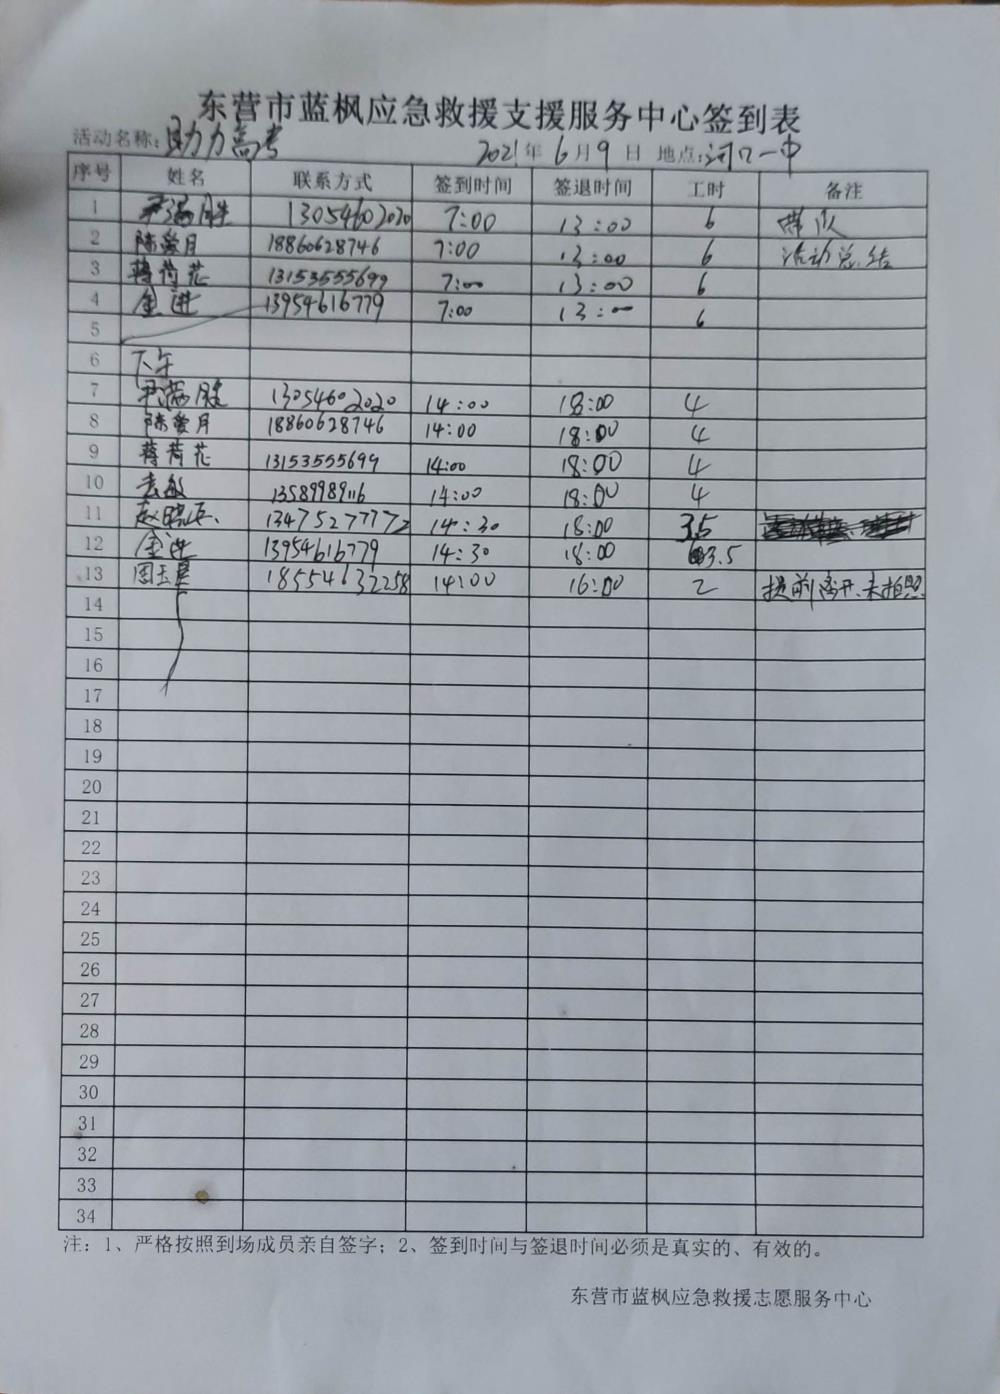 东营市蓝枫应急救援支援服务中心签到表
活动名称:助力高考 2021年6月9日 地点:河口一中
序号 姓名 联系方式 签到时间 签退时间 工时 备注
1 13054602020 7:00 13:00 6 带队
2 陈爱月 18860628746 7:00 13:00 6 活动总结
3 蒋荷花 13153555699 7:00 13:00 6
4 金进 13954616779 7:00 13:00 6
5
6 下午
7 13054602020 14:00 18:00 4
8 陈爱月 18860628746 14:00 18:00 4
9 蒋荷花 13153555699 14:00 18:00 4
10 13589989116 14:00 18:00 4
11 13475277772 14:30 18:00 3.5
12 金进 13954616779 14:30 18:00 3.5
13 18554632258 14:00 16:00 2 提前离开、未拍照
14
15
16
17
18
19
20
21
22
23
24
25
26
27
28
29
30
31
32
33
34
注：1、严格按照到场成员亲自签字；2、签到时间与签退时间必须是真实的、有效的。
东营市蓝枫应急救援志愿服务中心